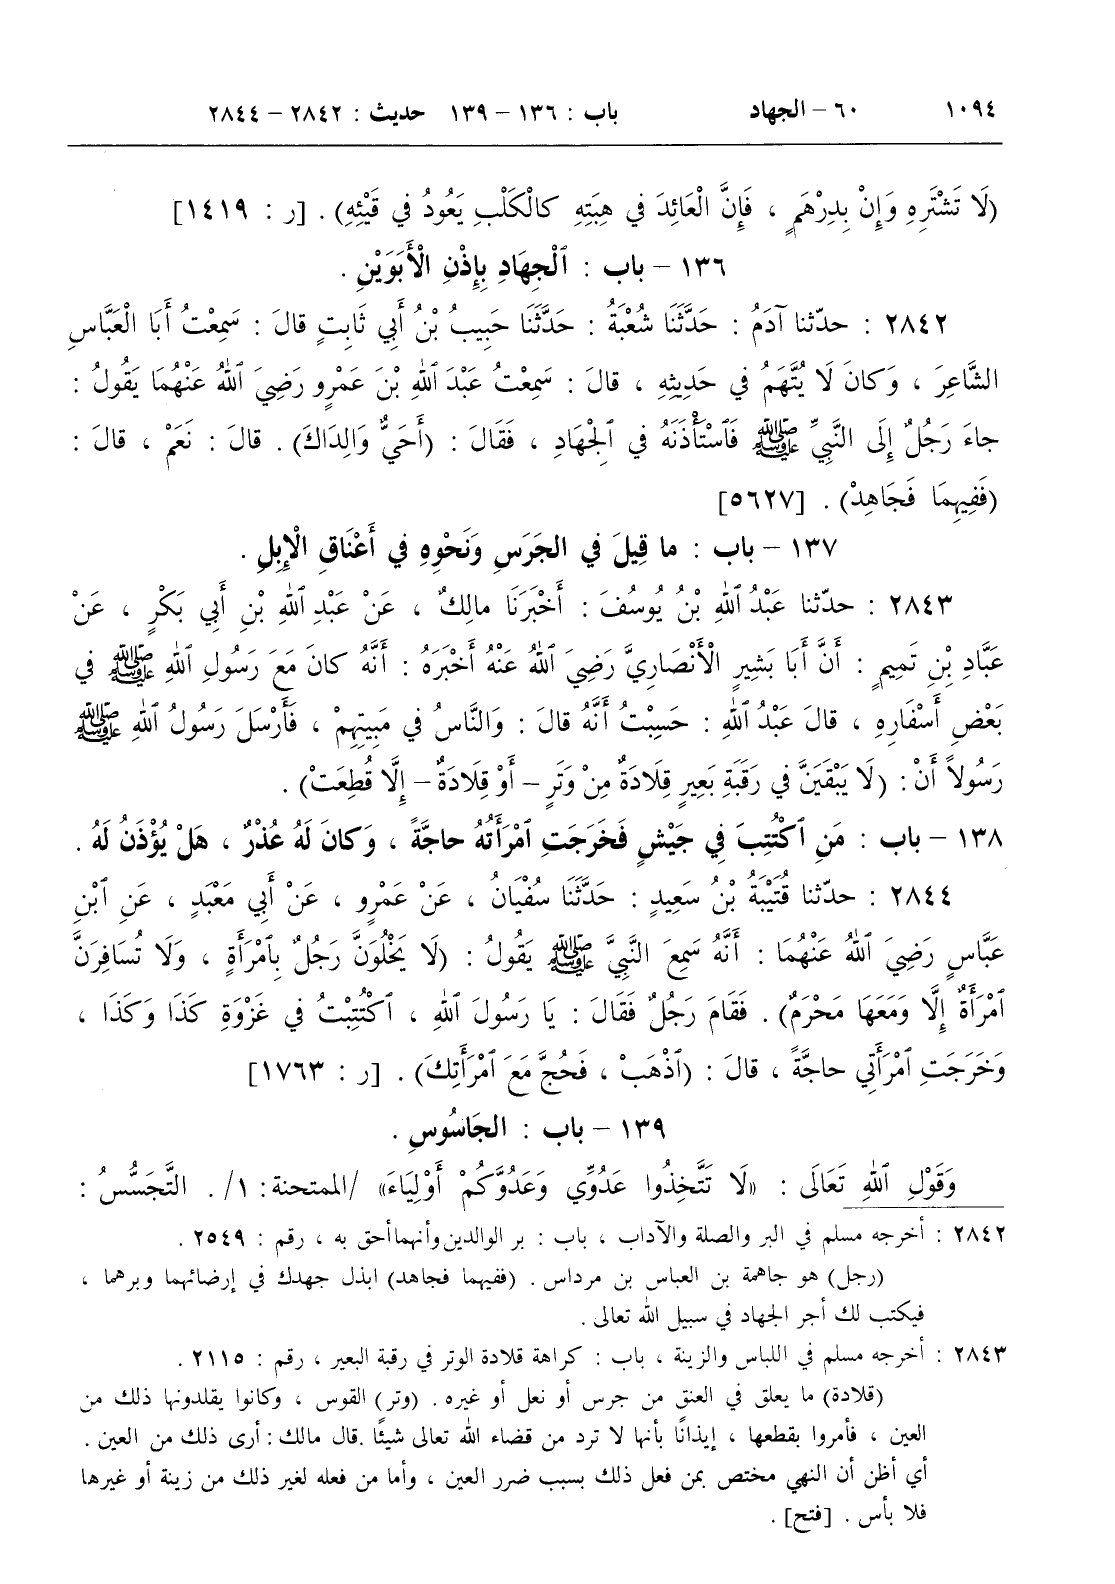 ١٠٩٤ ٦٠ – الجهاد باب : ١٣٦ – ١٣٩ حديث : ٢٨٤٢ – ٢٨٤٤
(لَا تَشْتَرِهِ وَإِنْ بِدِرْهَمٍ ، فَإِنَّ الْعَائِدَ فِي هِبَتِهِ كالْكَلْبِ يَعُودُ فِي قَيْئِهِ) . [ر : ١٤١٩]
١٣٦ – باب : ٱلْجِهَادِ بِإِذْنِ الْأَبَوَيْنِ .
٢٨٤٢ : حدّثنا آدَمُ : حَدَّثَنَا شُعْبَةُ : حَدَّثَنَا حَبِيبُ بْنُ أَبِي ثَابِتٍ قالَ : سَمِعْتُ أَبَا الْعَبَّاسِ
الشَّاعِرَ ، وَكانَ لَا يُتَّهَمُ فِي حَدِيثِهِ ، قالَ : سَمِعْتُ عَبْدَ ٱللهِ بْنَ عَمْرٍو رَضِيَ ٱللهُ عَنْهُمَا يَقُولُ :
جاءَ رَجُلٌ إِلَى النَّبِيِّ ﷺ فَٱسْتَأْذَنَهُ فِي الْجِهَادِ ، فَقَالَ : (أَحَيٌّ وَالِدَاكَ) . قالَ : نَعَمْ ، قالَ :
(فَفِيهِمَا فَجَاهِدْ) . [٥٦٢٧]
١٣٧ – باب : ما قِيلَ فِي الجَرَسِ وَنَحْوِهِ فِي أَعْنَاقِ الْإِبِلِ .
٢٨٤٣ : حدّثنا عَبْدُ ٱللهِ بْنُ يُوسُفَ : أَخْبَرَنَا مالِكٌ ، عَنْ عَبْدِ ٱللهِ بْنِ أَبِي بَكْرٍ ، عَنْ
عَبَّادِ بْنِ تَمِيمٍ : أَنَّ أَبَا بَشِيرٍ الْأَنْصَارِيَّ رَضِيَ ٱللهُ عَنْهُ أَخْبَرَهُ : أَنَّهُ كانَ مَعَ رَسُولِ ٱللهِ ﷺ فِي
بَعْضِ أَسْفَارِهِ ، قالَ عَبْدُ ٱللهِ : حَسِبْتُ أَنَّهُ قالَ : وَالنَّاسُ فِي مَبِيتِهِمْ ، فَأَرْسَلَ رَسُولُ ٱللهِ ﷺ
رَسُولاً أَنْ : (لَا يَبْقَيَنَّ فِي رَقَبَةِ بَعِيرٍ قِلَادَةٌ مِنْ وَتَرٍ – أَوْ قِلَادَةٌ – إِلَّا قُطِعَتْ) .
١٣٨ – باب : مَنِ ٱكْتُتِبَ فِي جَيْشٍ فَخَرَجَتِ ٱمْرَأَتُهُ حاجَّةً ، وَكانَ لَهُ عُذْرٌ ، هَلْ يُؤْذَنُ لَهُ .
٢٨٤٤ : حدّثنا قُتَيْبَةُ بْنُ سَعِيدٍ : حَدَّثَنَا سُفْيَانُ ، عَنْ عَمْرٍو ، عَنْ أَبِي مَعْبَدٍ ، عَنِ ٱبْنِ
عَبَّاسٍ رَضِيَ ٱللهُ عَنْهُمَا : أَنَّهُ سَمِعَ النَّبِيَّ ﷺ يَقُولُ : (لَا يَخْلُوَنَّ رَجُلٌ بِٱمْرَأَةٍ ، وَلَا تُسَافِرَنَّ
ٱمْرَأَةٌ إِلَّا وَمَعَهَا مَحْرَمٌ) . فَقَامَ رَجُلٌ فَقَالَ : يَا رَسُولَ ٱللهِ ، ٱكْتُتِبْتُ فِي غَزْوَةِ كَذَا وَكَذَا ،
وَخَرَجَتِ ٱمْرَأَتِي حاجَّةً ، قالَ : (ٱذْهَبْ ، فَحُجَّ مَعَ ٱمْرَأَتِكَ) . [ر : ١٧٦٣]
١٣٩ – باب : الجَاسُوسِ .
وَقَوْلِ ٱللهِ تَعَالَى : «لَا تَتَّخِذُوا عَدُوِّي وَعَدُوَّكُمْ أَوْلِيَاءَ» /الممتحنة : ١/ . التَّجَسُّسُ :
٢٨٤٢ : أخرجه مسلم في البر والصلة والآداب ، باب : بر الوالدين وأنهما أحق به ، رقم : ٢٥٤٩ .
(رجل) هو جاهمة بن العباس بن مرداس . (ففيهما فجاهد) ابذل جهدك في إرضائهما وبرهما ،
فيكتب لك أجر الجهاد في سبيل الله تعالى .
٢٨٤٣ : أخرجه مسلم في اللباس والزينة ، باب : كراهة قلادة الوتر في رقبة البعير ، رقم : ٢١١٥ .
(قلادة) ما يعلق في العنق من جرس أو نعل أو غيره . (وتر) القوس ، وكانوا يقلدونها ذلك من
العين ، فأمروا بقطعها ، إيذانًا بأنها لا ترد من قضاء الله تعالى شيئًا .قال مالك : أرى ذلك من العين .
أي أظن أن النهي مختص بمن فعل ذلك بسبب ضرر العين ، وأما من فعله لغير ذلك من زينة أو غيرها
فلا بأس . [فتح] .